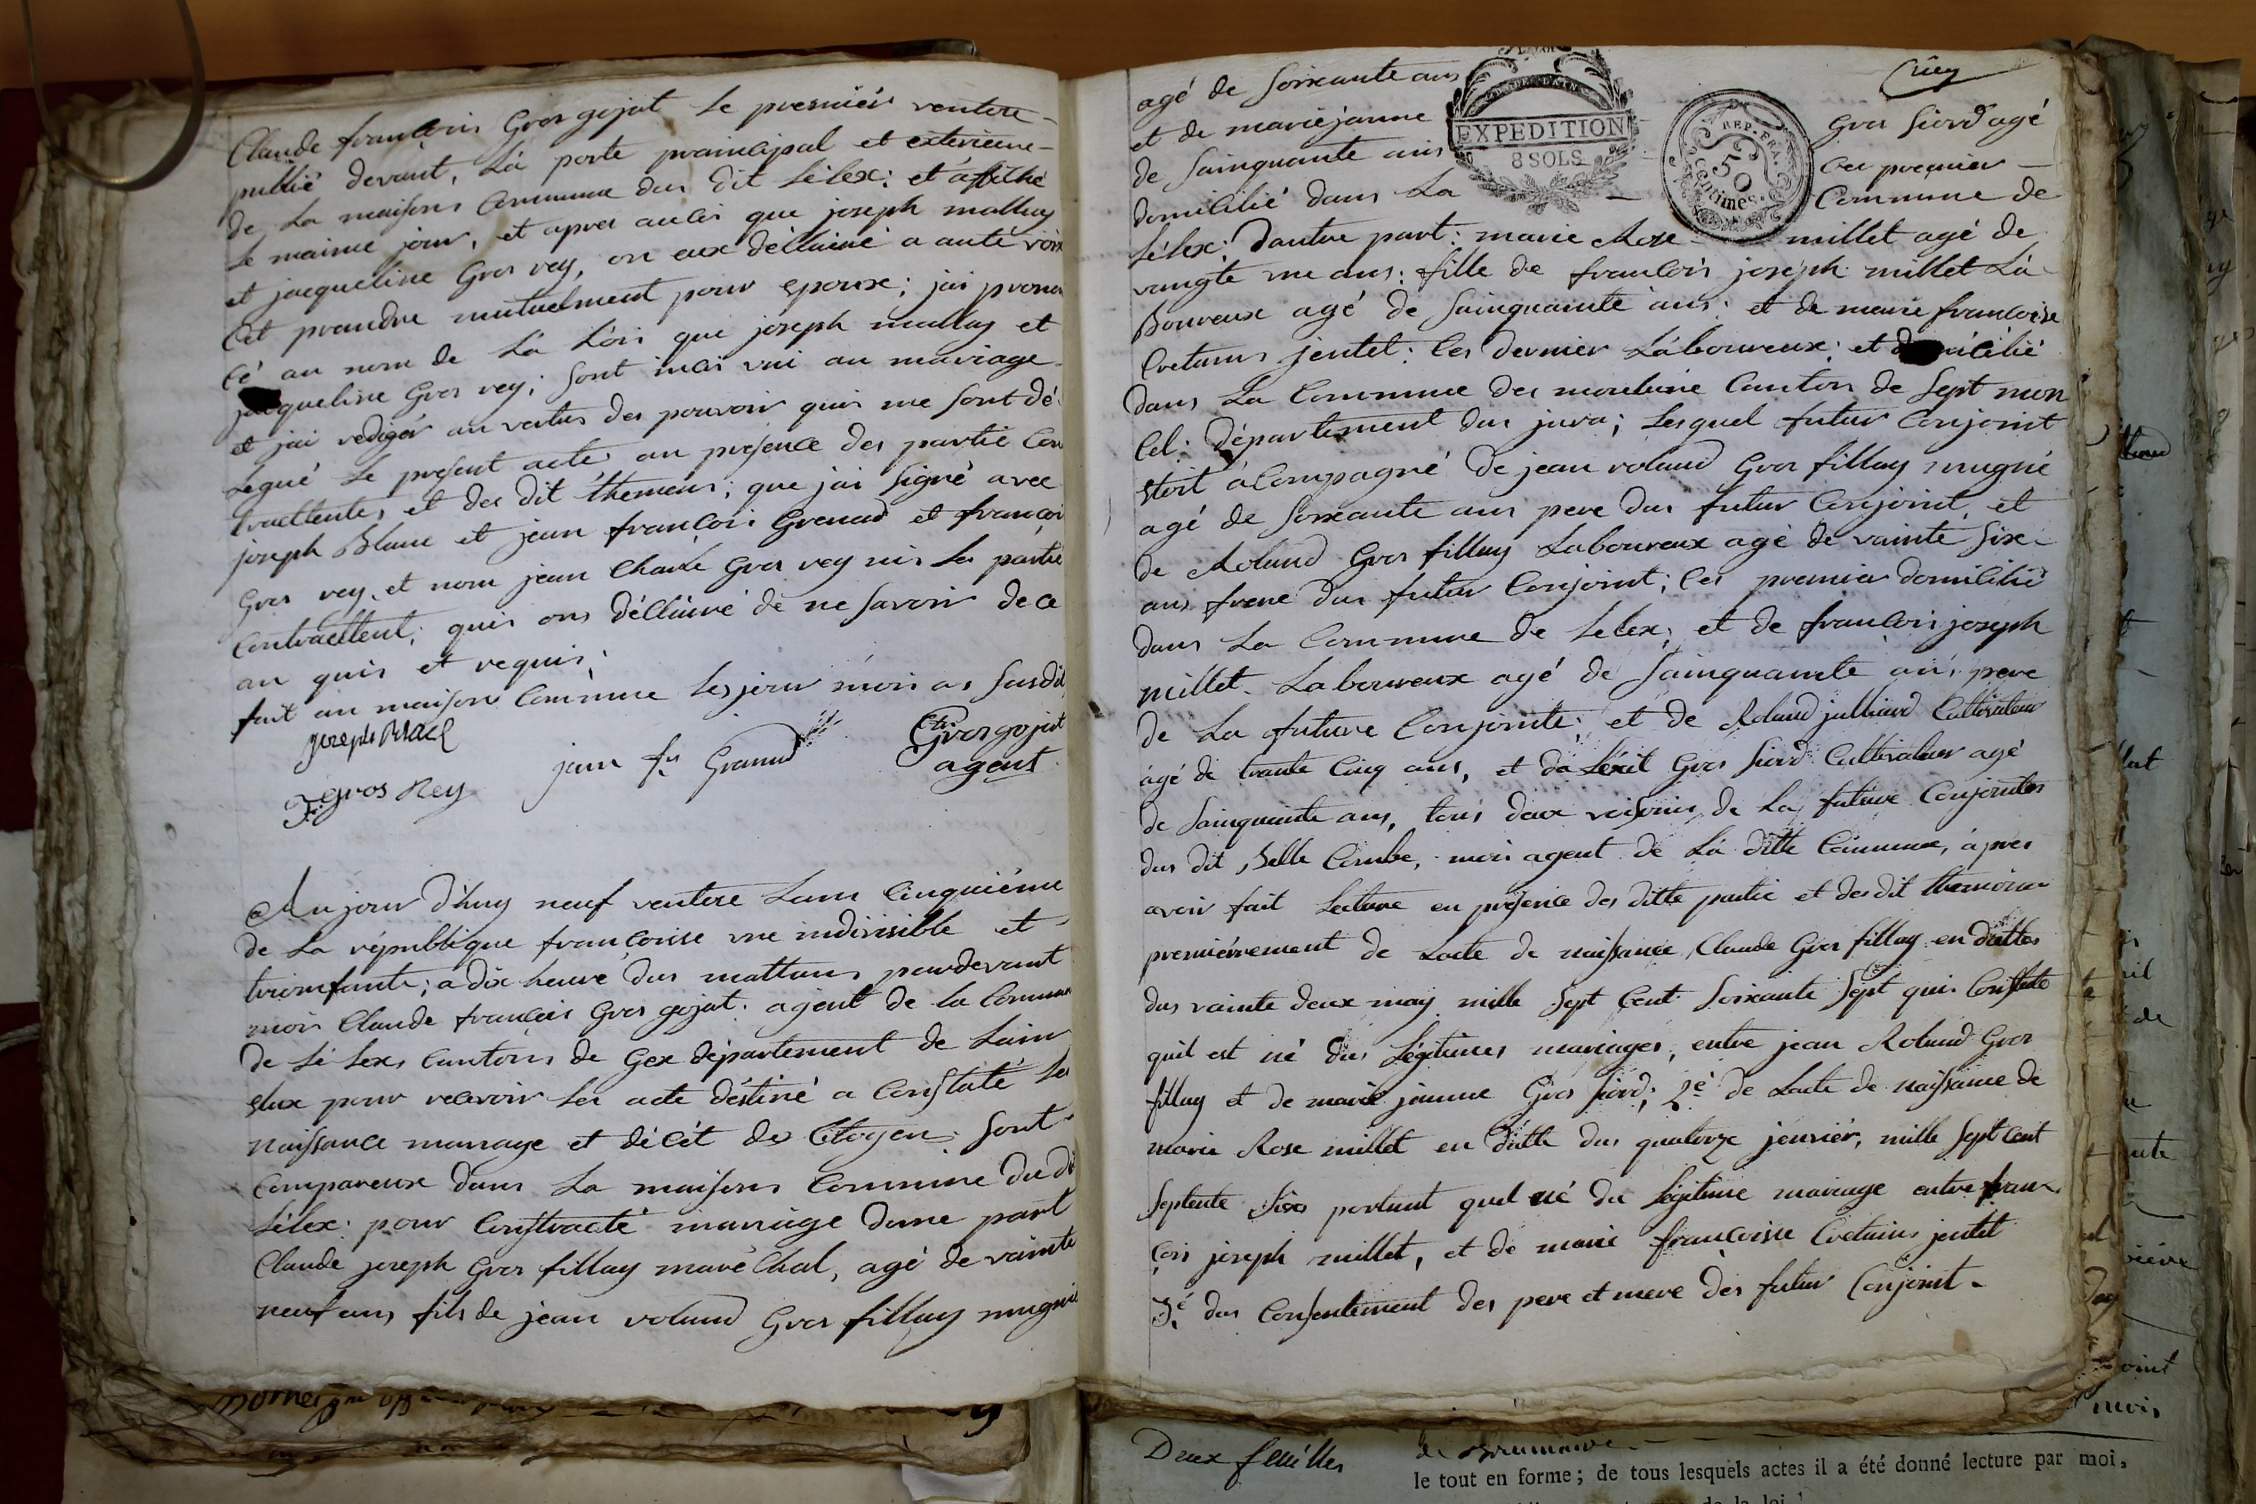 Claude francois Gros gojat Le premier ventere
publié devant, La porte prancipal et exterieure
de La maisons Commune dus dit Lélex: et afiché
Le maime jour, et apres auoir que joseph mathey
et jacqueline Gros rey, on eux déclairé a aute voix
Cet prandre mutuelment pour epoux; jai pronon
Cé au nom de La Lois que joseph mathey et
jacqueline Gros rey; sont unis au mariage
et jai rediger au vertus des pouvoir quis me sont dé
Legué Le present acte au presence des partie Con
tractentes, et des dit themens; que jai signé avec
joseph Blanc et jean françois Grenad et françois
Gros rey, et nom jean Charle Gros rey nis La partie
Contractent; quis ons déclairé de ne savoir de ce
an quis et requis;
fait an maison Commune Les jour mois as susdit
joseph Blanc
Grosgojat
jean fs Granad
agent
F gros Rey
Aujour d'huy neuf ventere Lans Cinquiéme
de La république françoise une indivisible et
triomfante; a dix heure dus mattans pardevant
mois Claude françois Gros gojat. agent de la Commune
de Lélex, Cantons de Gex département de Lain
elux pour recevoir Les acte déstiné a Constaté Les
naissance mariage et décét des Citoyen: sont
Compareux dans La maisons Commune du dit
Lélex: pour Constracté mariage dune part
Claude joseph Gros fillay maréchal, agé de vainte
neuf ans fils de jean roland Gros fillay mugnié
agé de soixante ans
EXPEDITION
8 SOLS
REP. FRA.
50
Centimes
et de marie janne
Gros siord agé
de sainquante ans
Ces premier
domicilié dans La
Commune de
Lélex: dautre part: marie Rose millet agé de
vangte une ans: fille de francois joseph millet La
Boureux agé de sainquante ans: et de marie francoise
Cretains jentet: Ces dernier Laboureux; et domicilié
dans La Commune des mouluine Canton de Sept mon
Cel. département dus jura; Lesquel futur Conjoint
stoit aCompagné de jean roland Gros fillay mugnié
agé de soixante ans pere dus futur Conjoint, et
de Roland Gros fillay Laboureux agé de vainte six
ans frere dus futur Conjoint; Ces premier domicilié
dans La Commune de Lelex; et de francois joseph
millet. Laboureux agé de sainquante ans, pere
de La future Conjointe; et de Roland julliard Cultivateur
agé de trante Cinq ans, et de Gros siord Cultivateur agé
de sainquante ans, tous deux voisins de La future Conjointes
dus dit Belle Combe, mois agent de La ditte Commune, apres
avoir fait Lecture en presence des ditte partie et des dit themoins
premiérement de Lacte de naissance Claude Gros fillay en dattes
dus vainte deux may mille sept Cent soixante sept qui Constate
quil est né dus Légitimes mariages, entre jean Roland Gros
fillay et de marie jeanne Gros siord; 2e de Lacte de naissance de
marie Rose millet en datte dus quatorze jenvier, mille sept Cent
septente six portant quel né du Legitime mariage entre fran
çois joseph millet, et de marie francoisse Cretains jentet
3e dus Consentement des pere et mere des futur Conjoint
Deux feuilles
de Brumaire
le tout en forme; de tous lesquels actes il a été donné lecture par moi,